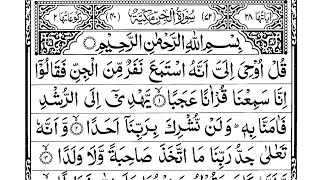 اٰیَاتُهَا ٢٨ (٧٢) سُوْرَةُ الْجِنِّ مَكِّيَّةٌ (٤٠) رُكُوْعَاتُهَا ٢
بِسْمِ اللّٰهِ الرَّحْمٰنِ الرَّحِيْمِ
قُلْ اُوْحِيَ اِلَيَّ اَنَّهُ اسْتَمَعَ نَفَرٌ مِّنَ الْجِنِّ فَقَالُوْٓا
اِنَّا سَمِعْنَا قُرْاٰنًا عَجَبًا ۝ يَّهْدِيْٓ اِلَى الرُّشْدِ
فَاٰمَنَّا بِهٖ ؕ وَلَنْ نُّشْرِكَ بِرَبِّنَآ اَحَدًا ۝ وَّاَنَّهٗ
تَعٰلٰى جَدُّ رَبِّنَا مَا اتَّخَذَ صَاحِبَةً وَّلَا وَلَدًا ۝